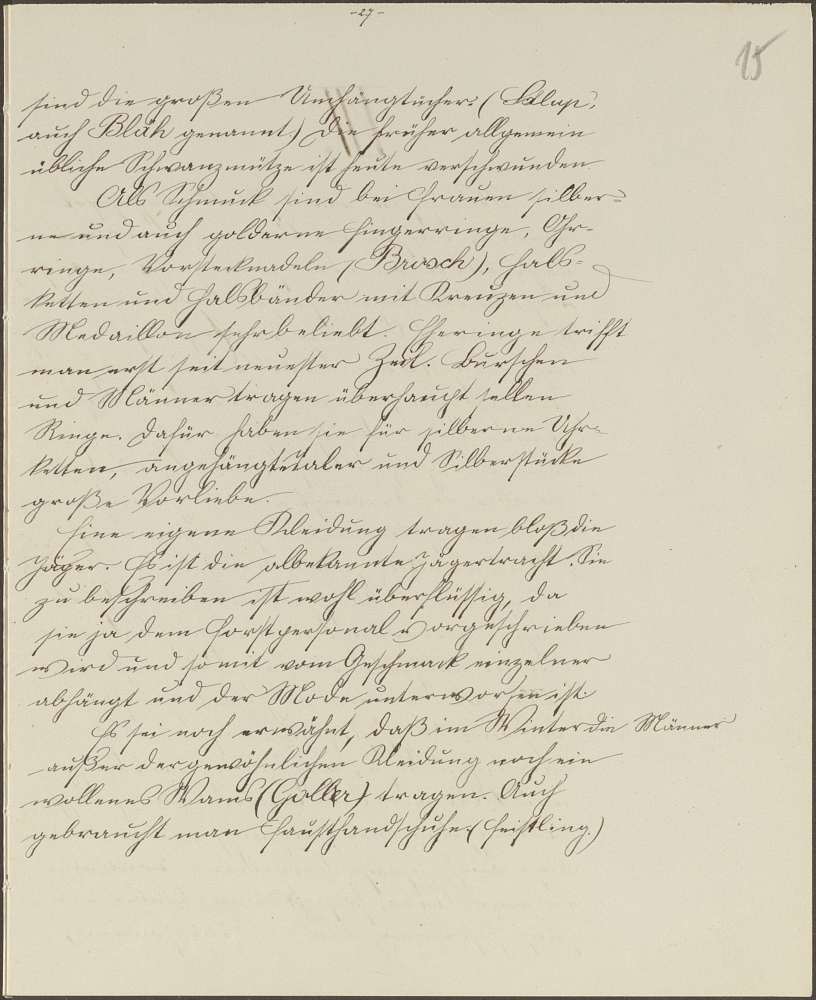 -27-
15
sind die großen Umhängtücher. (Salup,
auch Bläh genannt.) Die früher allgemein
übliche Schwanzmütze ist heute verschwunden.
Als Schmuck sind bei Frauen silber-
ne und auch goldene Fingerringe, Ohr-
ringe, Vorstecknadeln (Brosch), Hals-
ketten und Halsbänder mit Kreuzen und
Medaillon sehr beliebt. Eheringe trifft
man erst seit neuester Zeit. Burschen
und Männer tragen überhaupt selten
Ringe. Dafür haben sie für silberne Uhr-
ketten, angehängte Taler und Silberstücke
große Vorliebe.
Eine eigene Kleidung tragen bloß die
Jäger. Es ist die altbekannte Jägertracht. Sie
zu beschreiben ist wohl überflüssig, da
sie ja dem Forstpersonal vorgeschrieben
wird und somit vom Geschmack einzelner
abhängt und der Mode unterworfen ist.
Es sei noch erwähnt, daß im Winter die Männer
außer der gewöhnlichen Kleidung noch ein
wollenes Wams (Goller) tragen. Auch
gebraucht man Fausthandschuhe. (Feistling.)